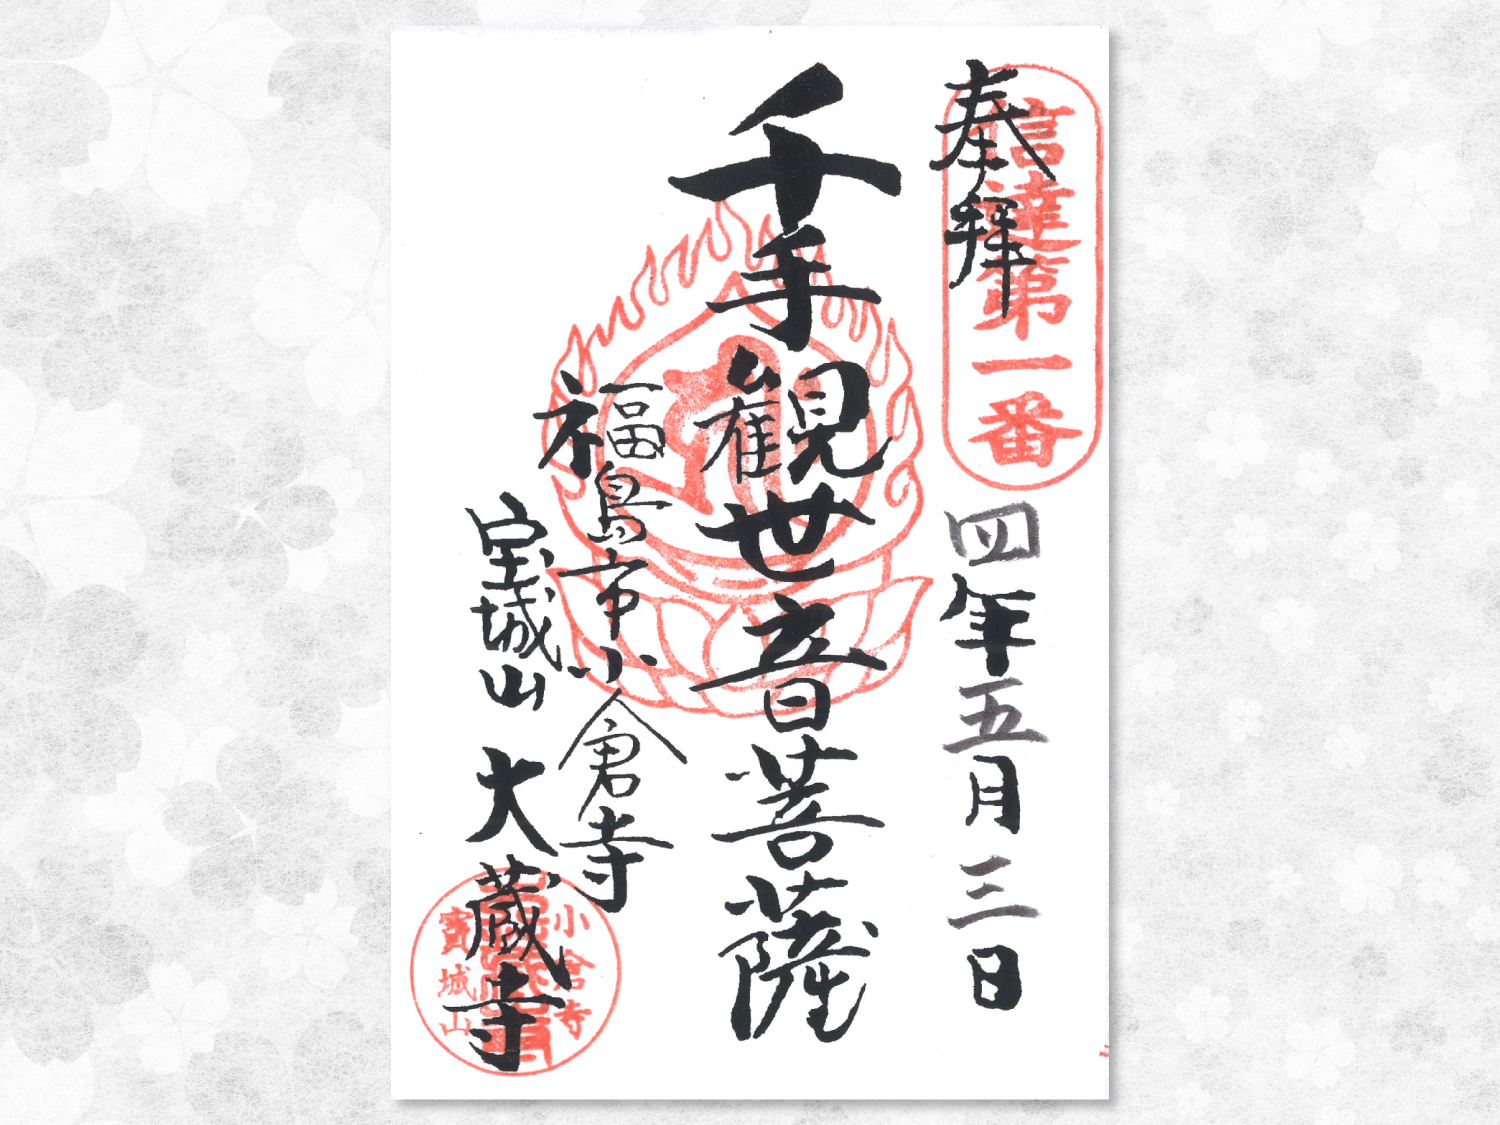 奉拝
信達第一番
四年五月三日
千手観世音菩薩
福島市小倉寺
宝城山 大蔵寺
小倉寺
寳城山